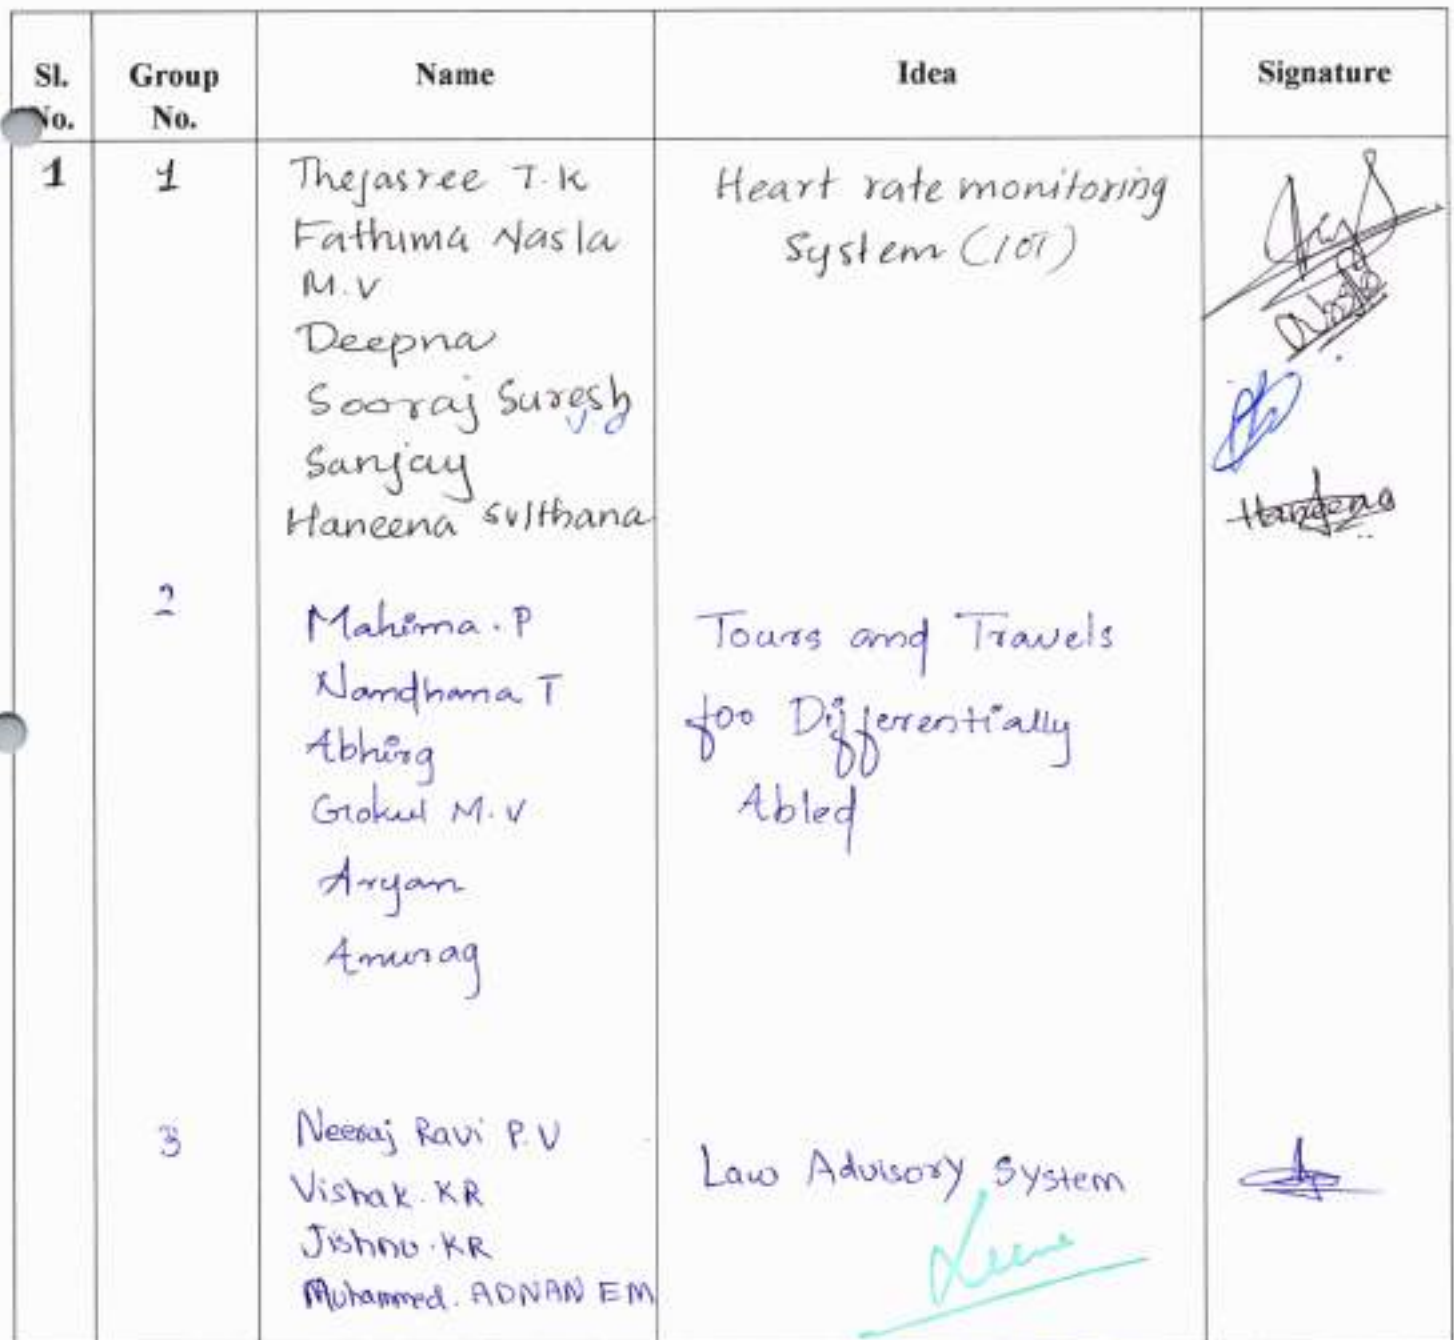 Sl. No.
Group No.
Name
Idea
Signature
1
1
Thejasree T.K
Fathima Nasla
M.V
Deepna
Sooraj Suresh
Sanjay
Haneena Sulthana
Heart rate monitoring
System (IOT)
Haneena
2
Mahima. P
Nandhana T
Abhirg
Gokul M.V
Aryan
Anurag
Tours and Travels
for Differentially
Abled
3
Neeraj Ravi P.V
Vishak. KR
Jishnu. KR
Muhammed. ADNAN EM
Law Advisory System